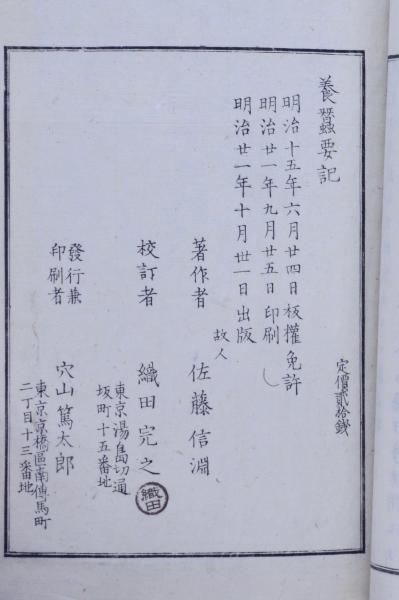 養蠶要記
定價貳拾錢
明治十五年六月廿四日板權免許
明治廿一年九月廿五日印刷
明治廿一年十月卅一日出版
著作者 故人 佐藤信淵
校訂者 織田完之
東京湯島切通
坂町十五番地
織田
發行兼
印刷者
穴山篤太郎
東京京橋區南傳馬町
二丁目十三番地